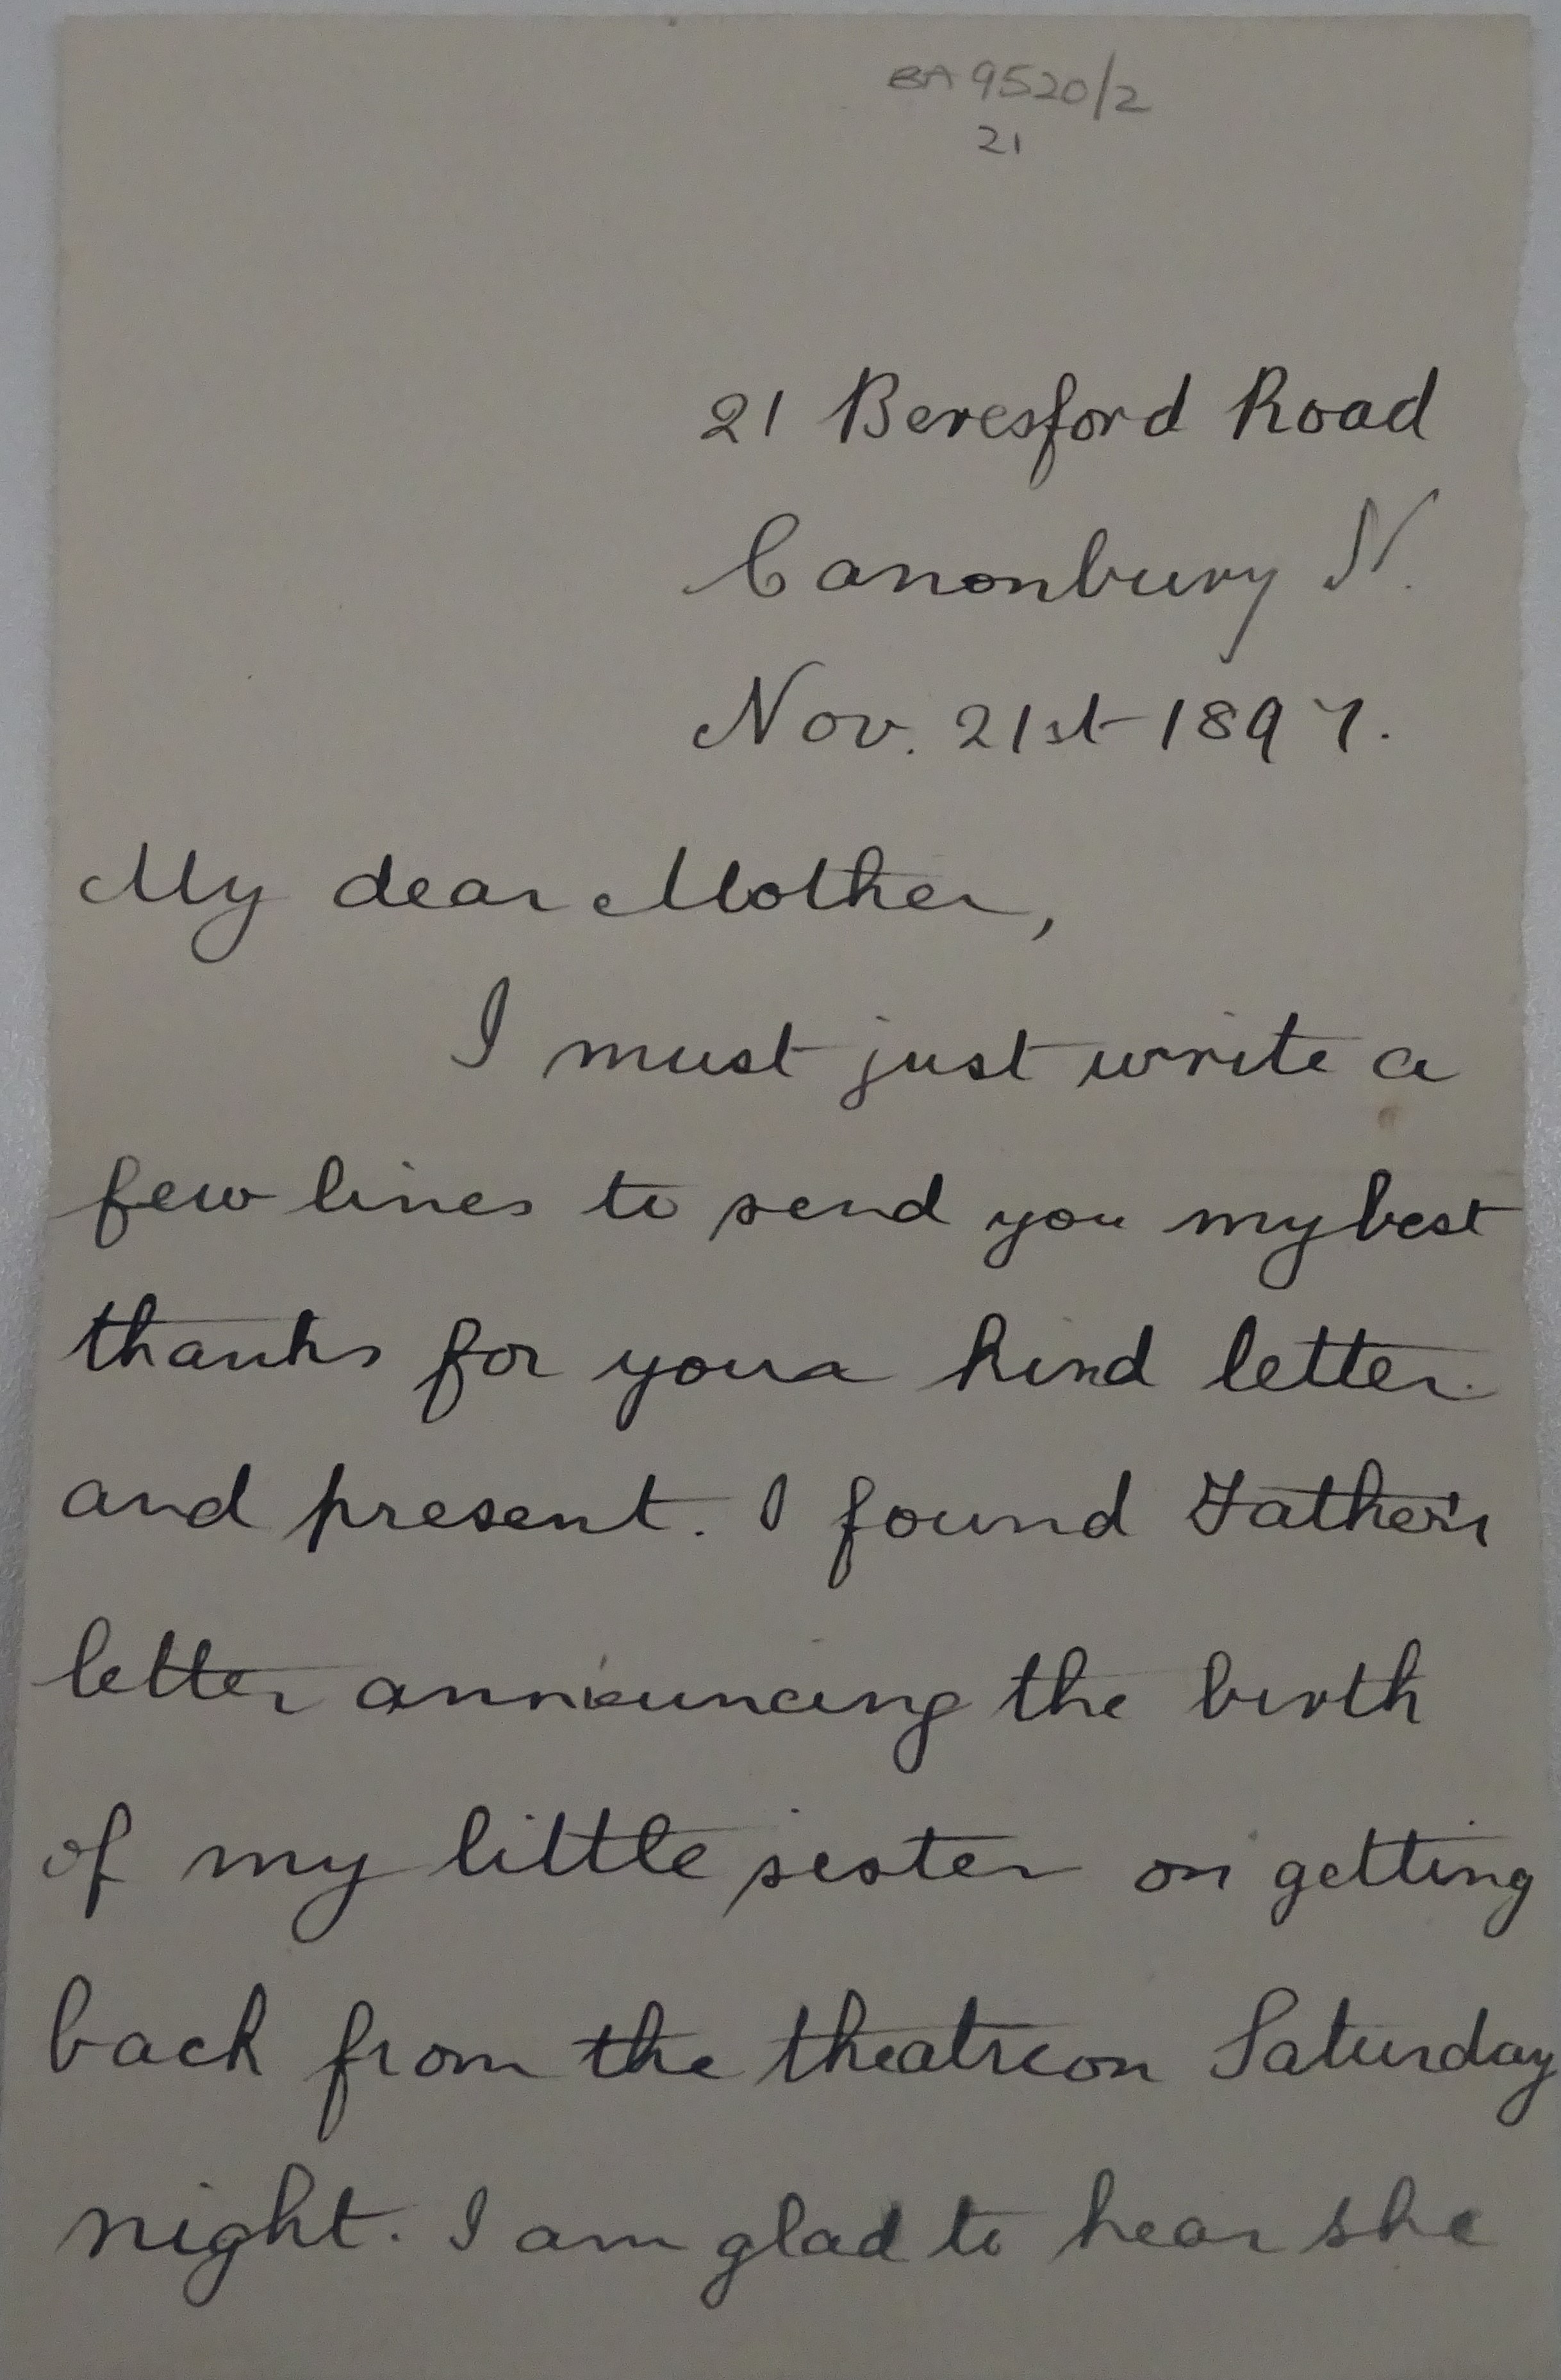 BA 9520/2
21
21 Beresford Road
Canonbury N.
Nov. 21st 1897.
My dear Mother,
I must just write a
few lines to send you my best
thanks for your kind letter
and present. I found Father's
letter announcing the birth
of my little sister on getting
back from the theatre on Saturday
night. I am glad to hear she